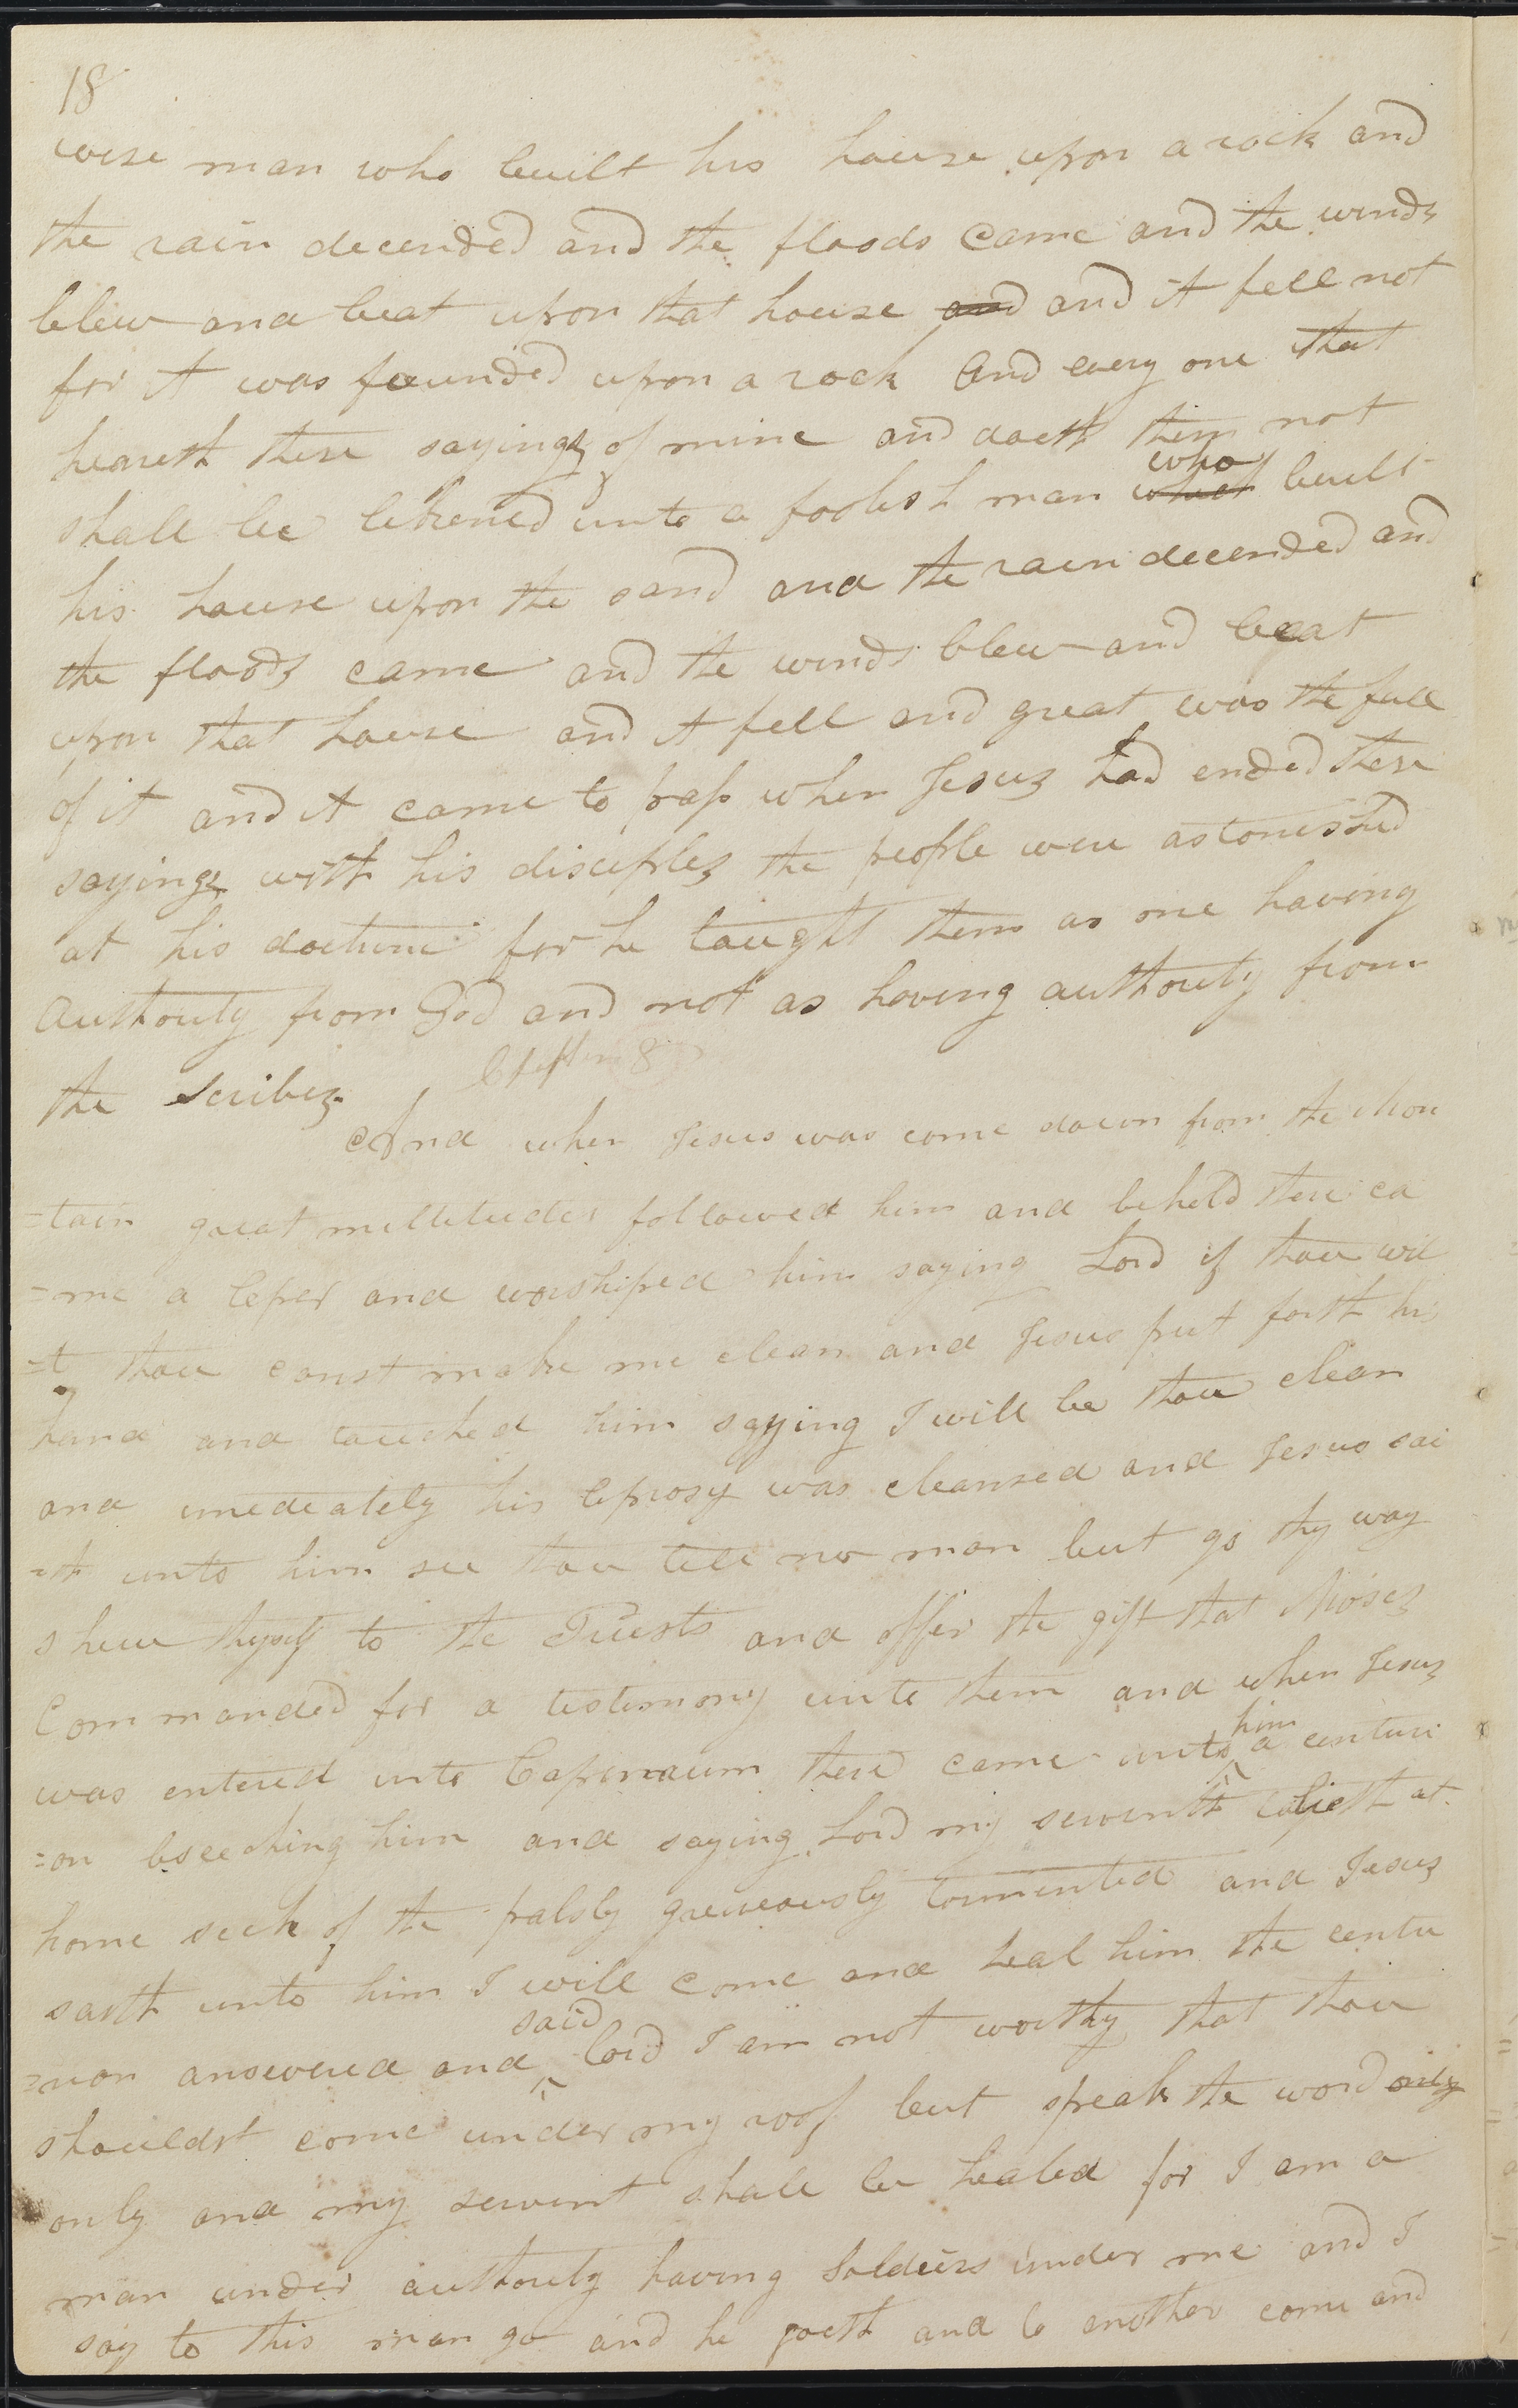 18
wise man who built his house upon a rock and
the rain decended and the floods came and the winds
blew and beat upon that house and and it fell not
for it was founded upon a rock And every one that
heareth these sayings of mine and doeth them not
who
shall be likened unto a foolish man which built
his house upon the sand and the rain decended and
the floods came and the winds blew and beat
upon that house and it fell and great was the fall
of it and it came to pass when Jesus had ended these
sayings with his disciples the people were astonished
at his doctrine for he taught them as one having
Authority from God and not as having authority from
the scribes
Chapter 8
And when Jesus was come down from the Moun
=tain great multitudes followed him and behold there ca
=me a leper and worshiped him saying Lord if thou wil
=t thou canst make me clean and Jesus put forth his
hand and touched him saying I will be thou clean
and imediately his leprosy was cleansed and Jesus sai
=th unto him see thou tell no man but go thy way
shew thyself to the Priests and offer the gift that Moses
Commanded for a testimony unto them and when Jesus
him
was entered into Capernaum there came unto a centuri
=on bseeching him and saying Lord my servent lieth at
home sick of the palsy greveously tormented and Jesus
saith unto him I will come and heal him the centu
said
=rion answered and Lord I am not worthy that thou
shouldst come under my roof but speak the word only
only and my servent shall be healed for I am a
man under authority having Soldiers under me and I
say to this man go and he goeth and to another come and